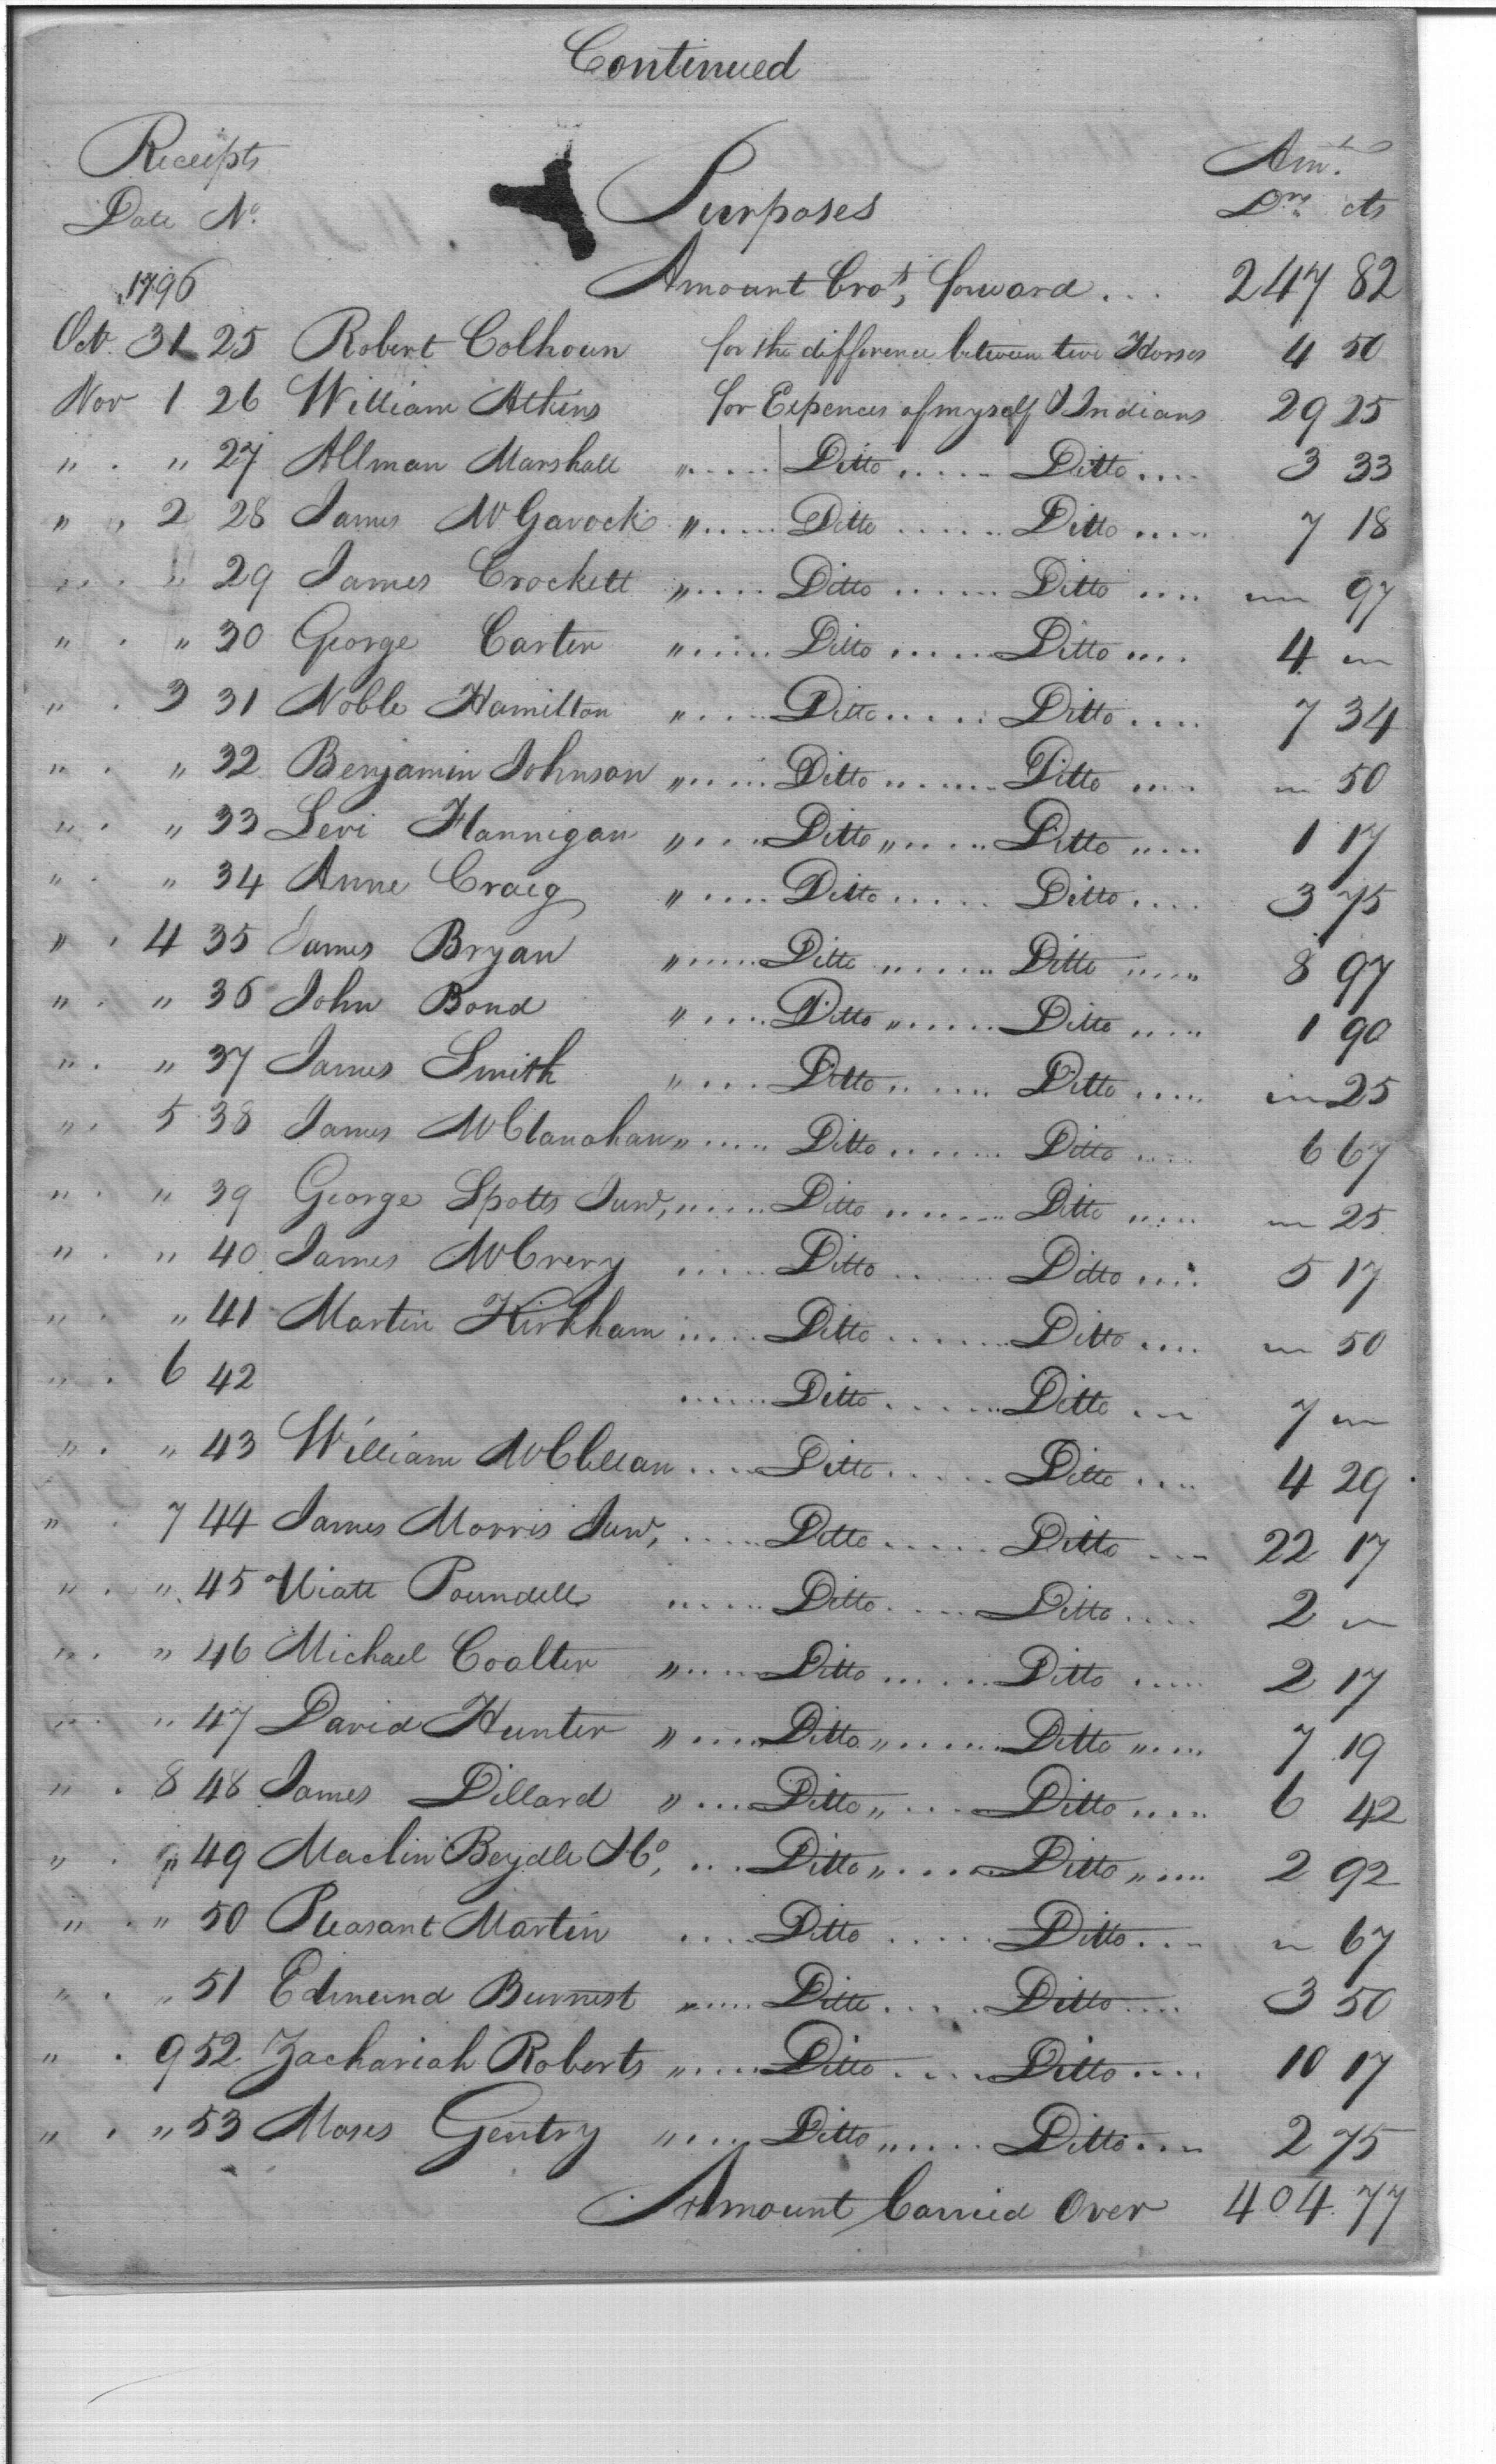 Continued
Receipts Amt.
Date No. Purposes Drs. cts
1796 Amount Brot, forward ... 247 82
Oct. 31 25 Robert Colhoun for the difference between two Horses 4 50
Nov 1 26 William Atkins for Expences of myself & Indians 29 25
" . " 27 Allman Marshall " ..... Ditto ..... Ditto .... 3 33
" . 2 28 James McGavock " ..... Ditto ..... Ditto .... 7 18
" . " 29 James Crockett " ..... Ditto ..... Ditto .... " 97
" . " 30 George Carter " ..... Ditto ..... Ditto .... 4 "
" . 3 31 Noble Hamilton " ..... Ditto ..... Ditto .... 7 34
" . " 32 Benjamin Johnson " ..... Ditto ..... Ditto .... " 50
" . " 33 Levi Flannigan " .... Ditto " ..... Ditto .... 1 17
" . " 34 Anne Craig " .... Ditto ..... Ditto .... 3 75
" . 4 35 James Bryan " ..... Ditto ..... Ditto .... 8 97
" . " 36 John Bond " .... Ditto " ..... Ditto .... 1 90
" . " 37 James Smith " .... Ditto ..... Ditto .... " 25
" . 5 38 James McClanahan " ..... Ditto ..... Ditto .... 6 67
" . " 39 George Spotts Junr, " ..... Ditto ..... Ditto .... " 25
" . " 40 James McCrery ..... Ditto ..... Ditto .... 5 17
" . " 41 Martin Kirkham ..... Ditto ..... Ditto .... " 50
" . 6 42 ..... Ditto ..... Ditto ... 7 "
" . " 43 William McClellan .... Ditto ..... Ditto .... 4 29
" . 7 44 James Morris Junr, ..... Ditto ..... Ditto ... 22 17
" . " 45 Uiatt Poundell ..... Ditto ..... Ditto .... 2 "
" . " 46 Michael Coalter " ..... Ditto ..... Ditto .... 2 17
" . " 47 David Hunter " .... Ditto " ..... Ditto " .... 7 19
" . 8 48 James Dillard " .... Ditto " .... Ditto .... 6 42
" . " 49 Maclin Beydle & Co, ... Ditto " .... Ditto " .... 2 92
" . " 50 Pleasant Martin .... Ditto ..... Ditto ... " 67
" . " 51 Edmund Burnest " .... Ditto .... Ditto .... 3 50
" . 9 52 Zachariah Roberts " .... Ditto .... Ditto .... 10 17
" . " 53 Moses Gentry " .... Ditto " .... Ditto ... 2 75
Amount Carried Over 404.77